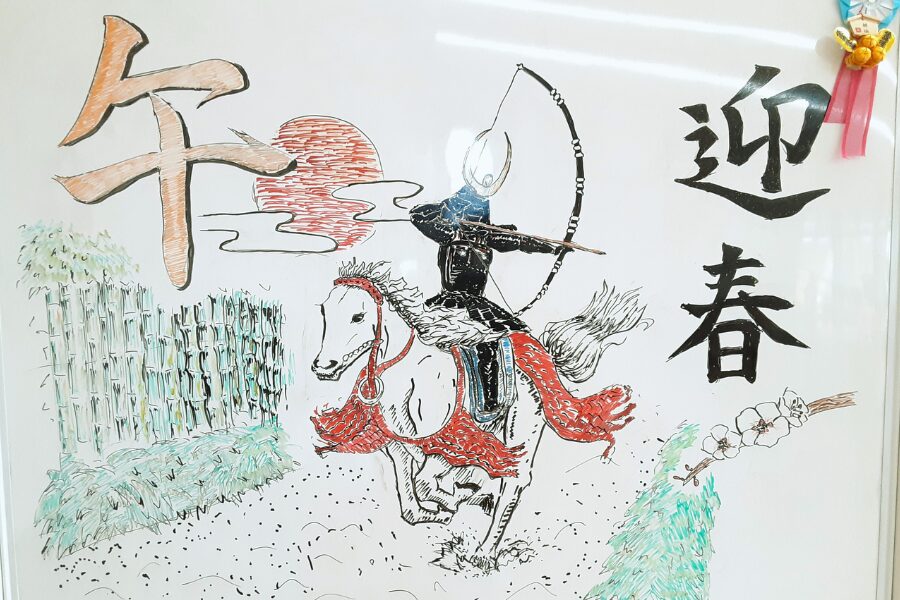 迎春
午